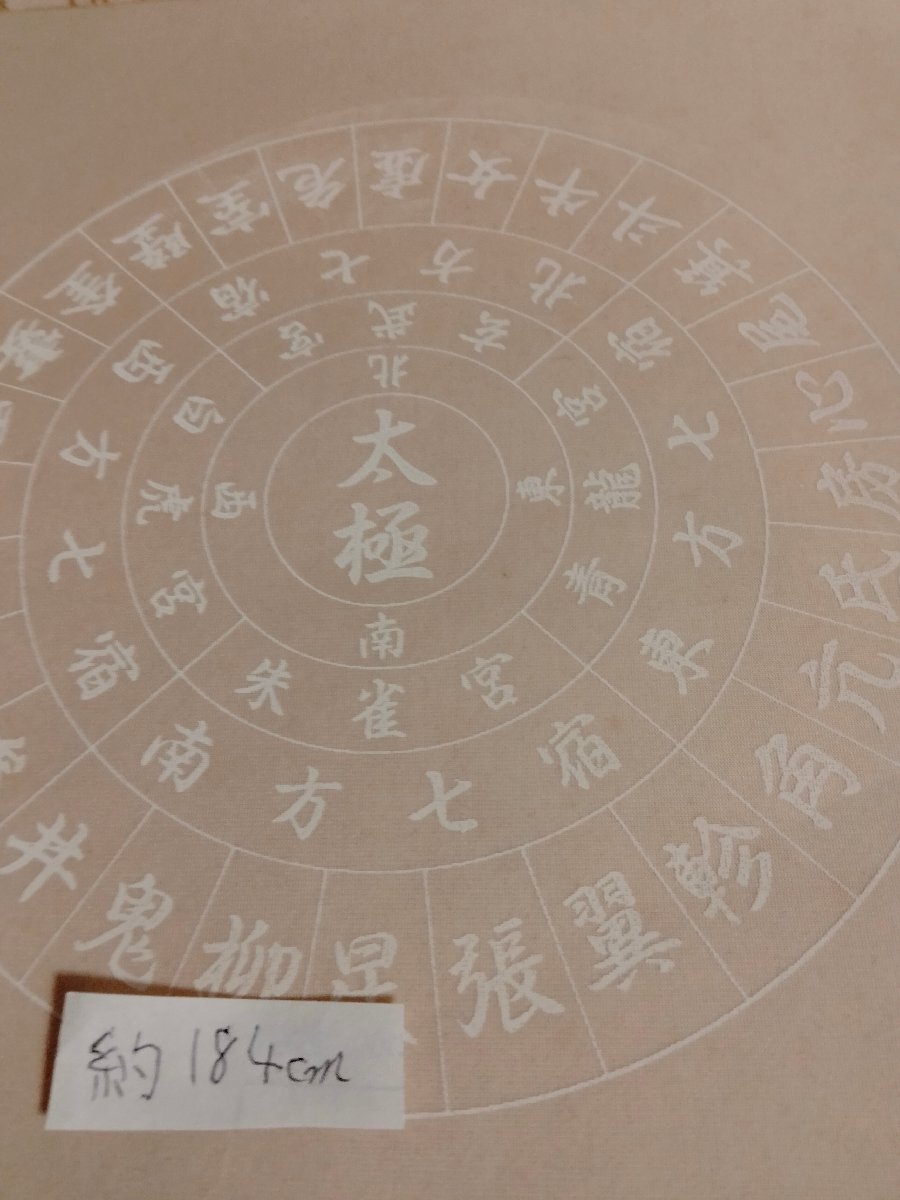 太極
北
東
南
西
玄武宮
青龍宮
朱雀宮
白虎宮
北方七宿
東方七宿
南方七宿
西方七宿
斗
牛
女
虚
危
室
壁
奎
婁
井
鬼
柳
星
張
翼
軫
角
亢
氐
房
心
尾
箕
約184cm